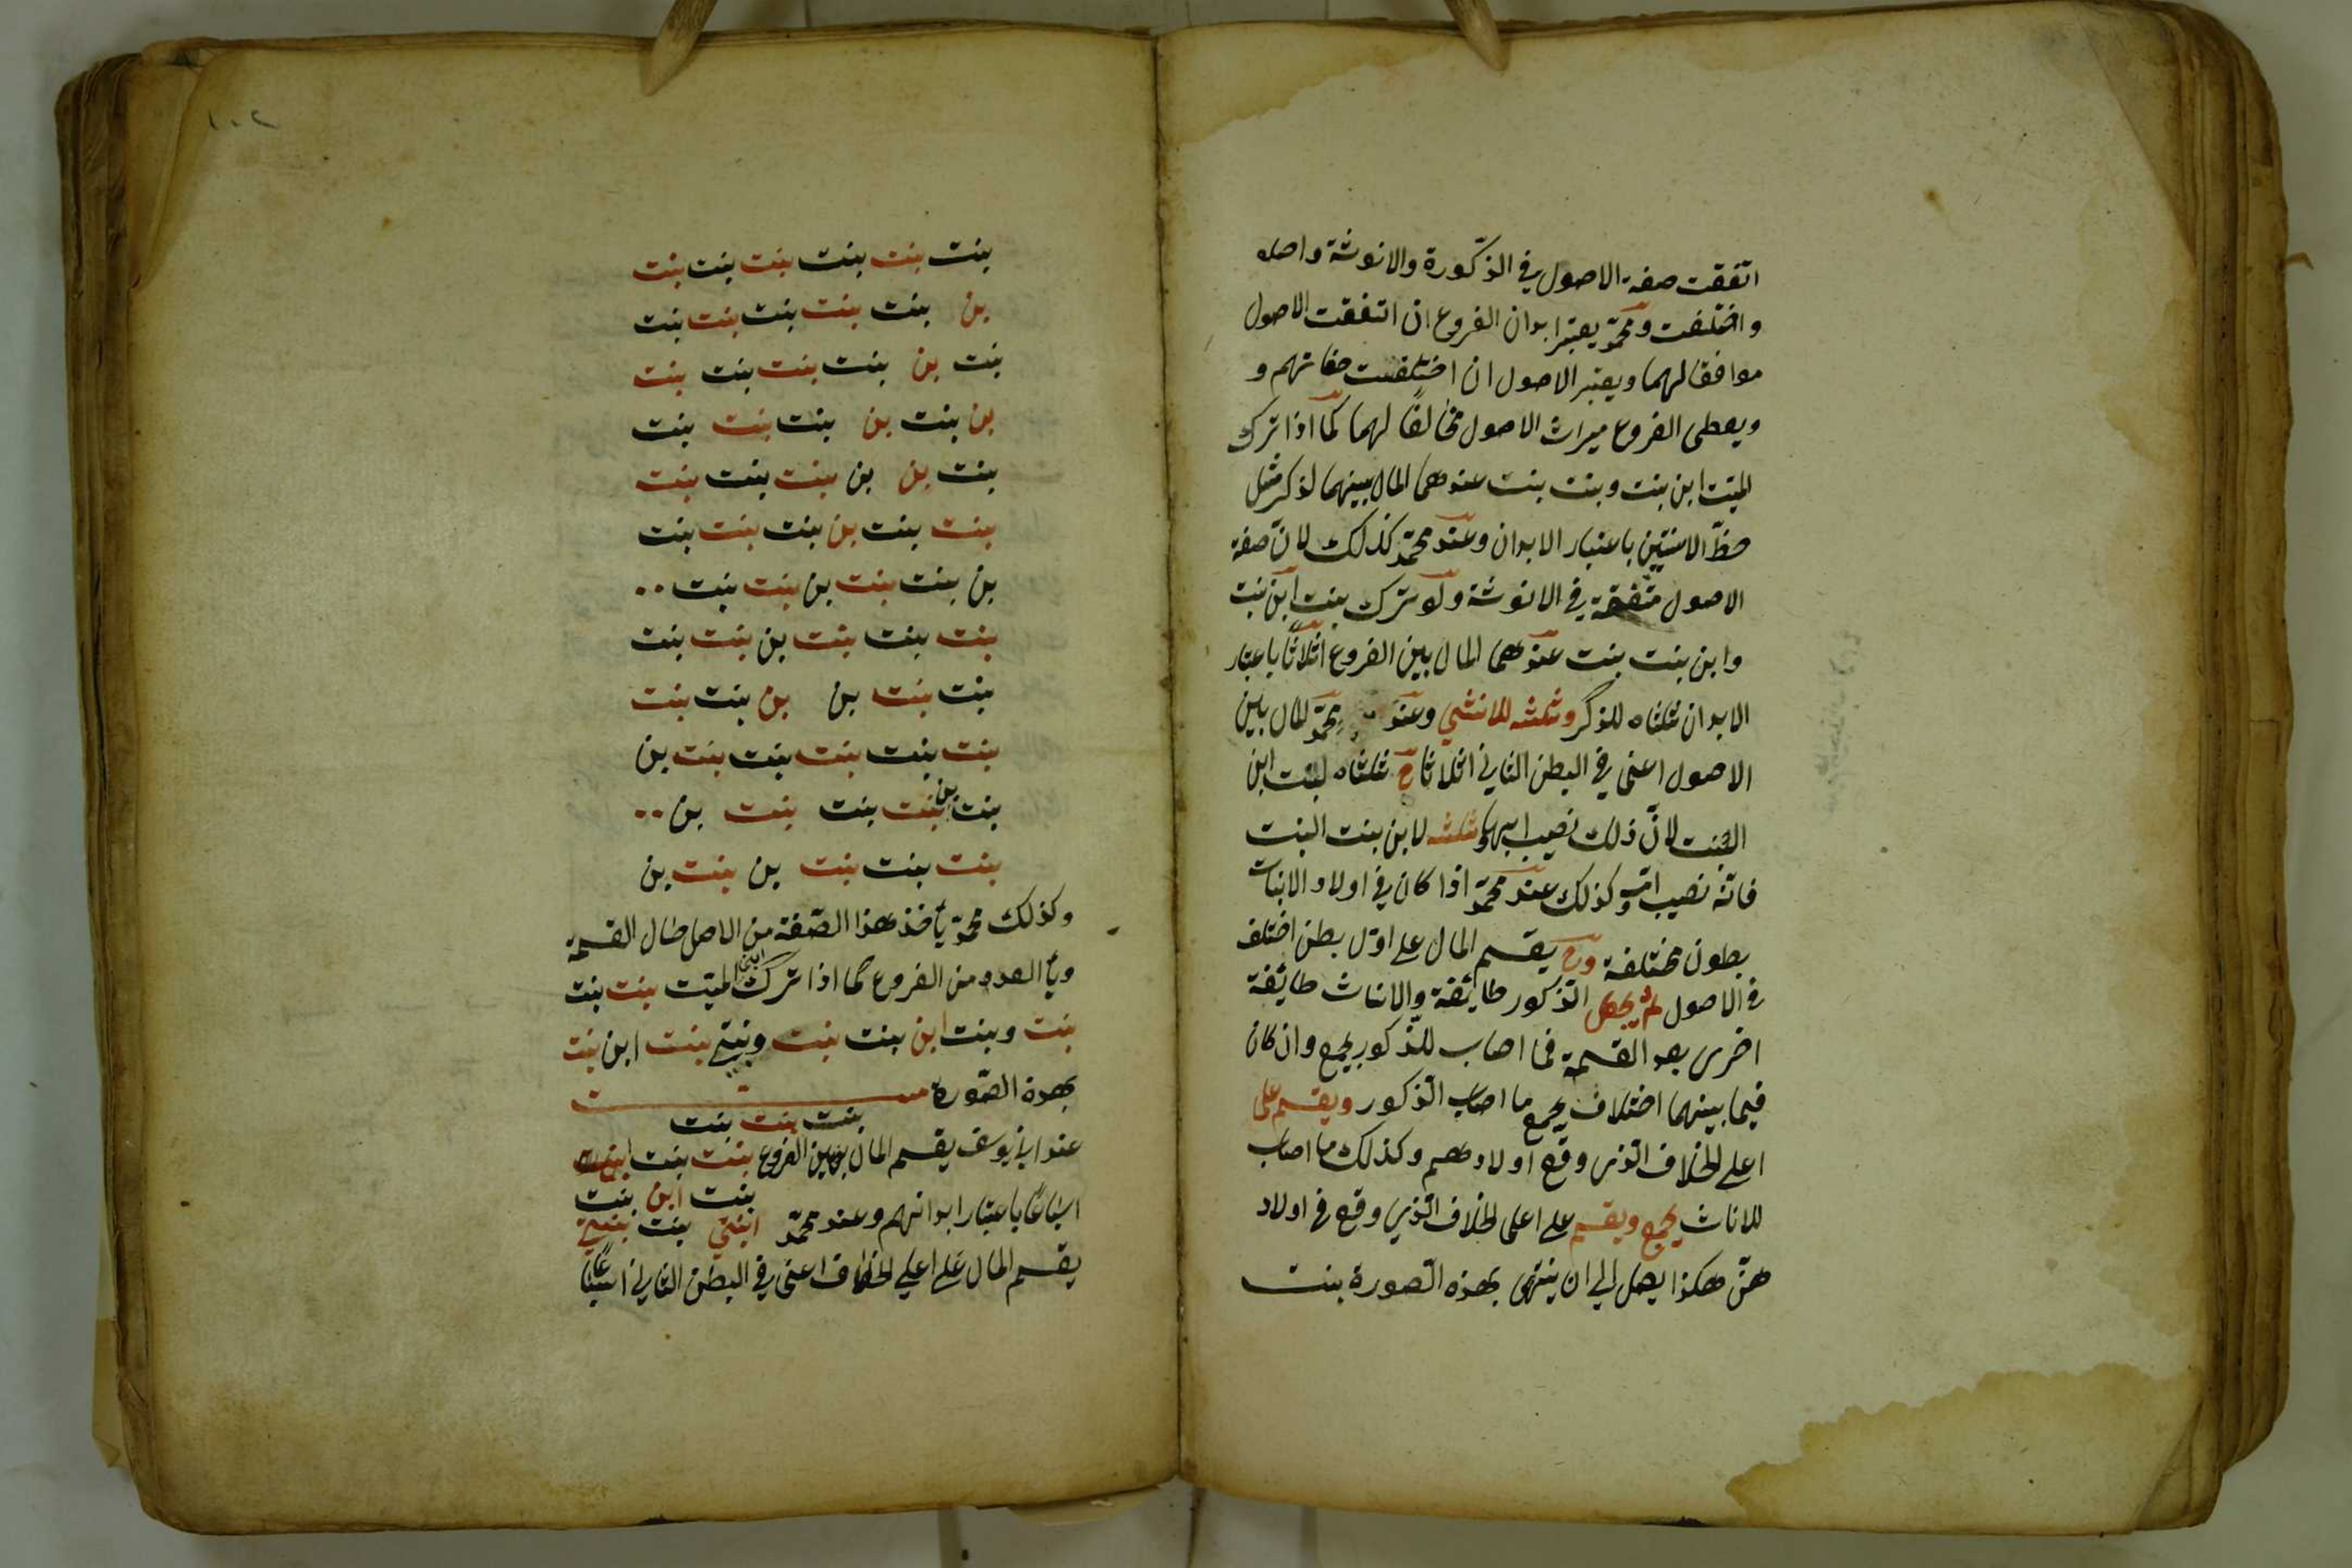 اتفقت صفة الاصول في الذّكورة والانوثة واصله
واختلفت ومحمّد يعتبر ابدان الفروع ان اتفقت الاصول
موافقا لهما ويعتبر الاصول ان اختلفت صفاتهم و
ويعطى الفروع ميراث الاصول مخالفًا لهما كما اذا ترك
الميّت ابن بنت وبنت بنت عندهما المال بينهما لذكر مثل
حظّ الانثيين باعتبار الابدان وعند محمّد كذلك لانّ صفة
الاصول متفقة في الانوثة ولو ترك بنت ابن بنت
وابن بنت بنت عندهما المال بين الفروع اثلاثًا باعتبار
الابدان ثلثاه للذكر وثلثه للانثي وعند محمّد المال بين
الاصول اعنى في البطن الثاني اثلاثا ح ثلثاه لبنت ابن
البنت لانّ ذلك نصيب ابيها وثلثه لابن بنت البنت
فانّه نصيب امّه وكذلك عند محمّد اذا كان في اولاد الابنات
بطون مختلفة وح يقسم المال على اوّل بطن اختلف
في الاصول ثم يجعل الذكور طايفة والاناث طايفة
اخرى بعد القسمة فما اصاب للذكور يجمع وان كان
فيما بينهما اختلاف يجمع ما اصاب الذكور ويقسم على
اعلى الخلاف الذى وقع اولادهم وكذلك ما اصاب
للاناث يجمع ويقسم على اعلى الخلاف الذي وقع في اولاد
هنّ هكذا يعمل الي ان ينتهى بهذه الصورة بنت
١٠٢
بنت بنت بنت بنت بنت بنت
بن بنت بنت بنت بنت بنت
بنت بن بنت بنت بنت بنت
بن بنت بن بنت بنت بنت
بنت بن بن بنت بنت بنت
بنت بنت بن بنت بنت بنت
بن بنت بنت بن بنت بنت
بنت بنت بنت بن بنت بنت
بنت بنت بن بن بنت بنت
بنت بنت بنت بنت بنت بن
بنت بن بنت بنت بنت بن
بنت بنت بنت بن بنت بن
وكذلك محمّد يأخذ هذا الصّفة من الاصل حال القسمة
ويأ العدد من الفروع كما اذا ترك الميّت بنت بنت
بنت وبنت ابن بنت بنت وبنتي بنت ابن بنت
بهذة الصّورة
بنت بنت بنت
عند ابي يوسف يقسم المال بين الفروع بنت بنت
بنت ابن بنت
اسباعًا باعتبار ابدانهم وعند محمّد ابنتي بنت بنتي
يقسم المال على اعلي الخلاف اعنى في البطن الثاني اسباعًا